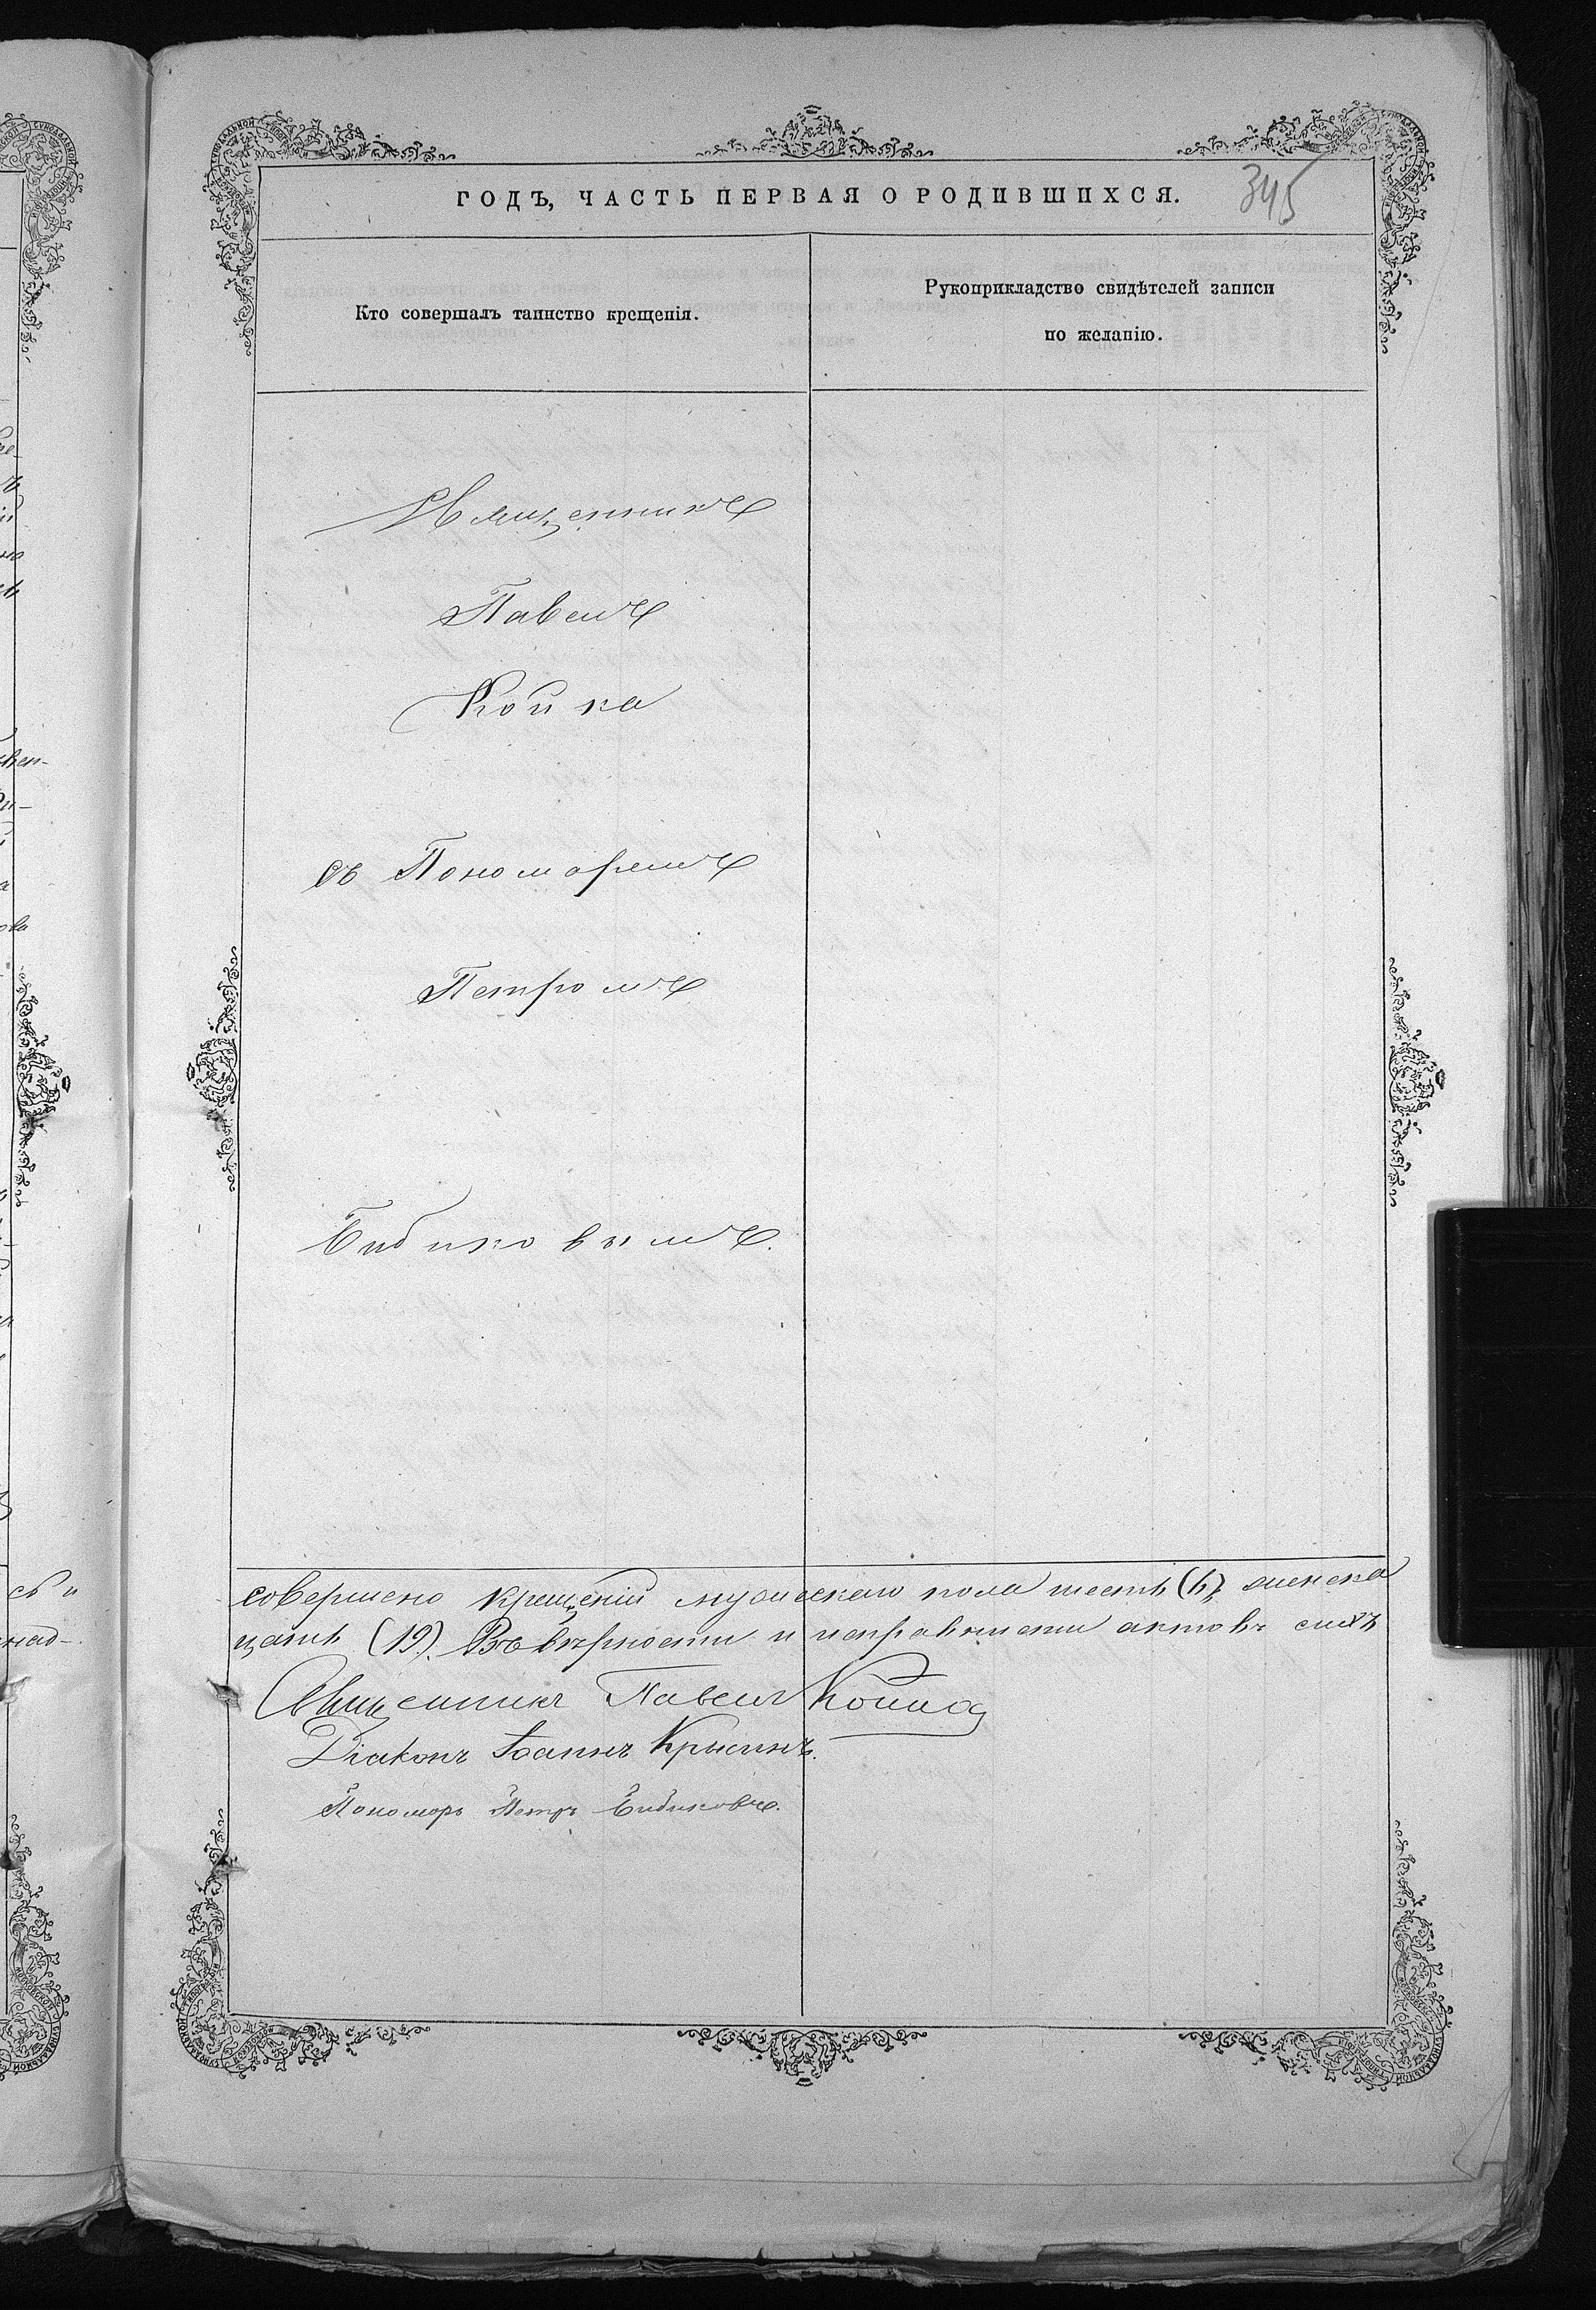 ГОДЪ, ЧАСТЬ ПЕРВАЯ О РОДИВШИХСЯ.
345
Кто совершалъ таинство крещенія.
Рукоприкладство свидѣтелей записи
по желанію.
Священникъ
Павелъ
Койка
съ Пономаремъ
Петромъ
Бибиковымъ.
совершено крещеній мужескаго пола шесть (6), женска
цать (19). Въ вѣрности и исправности актовъ сихъ
Священникъ Павелъ Койка
Діаконъ Іоаннъ Крысинъ.
Пономарь Петръ Бибиковъ.